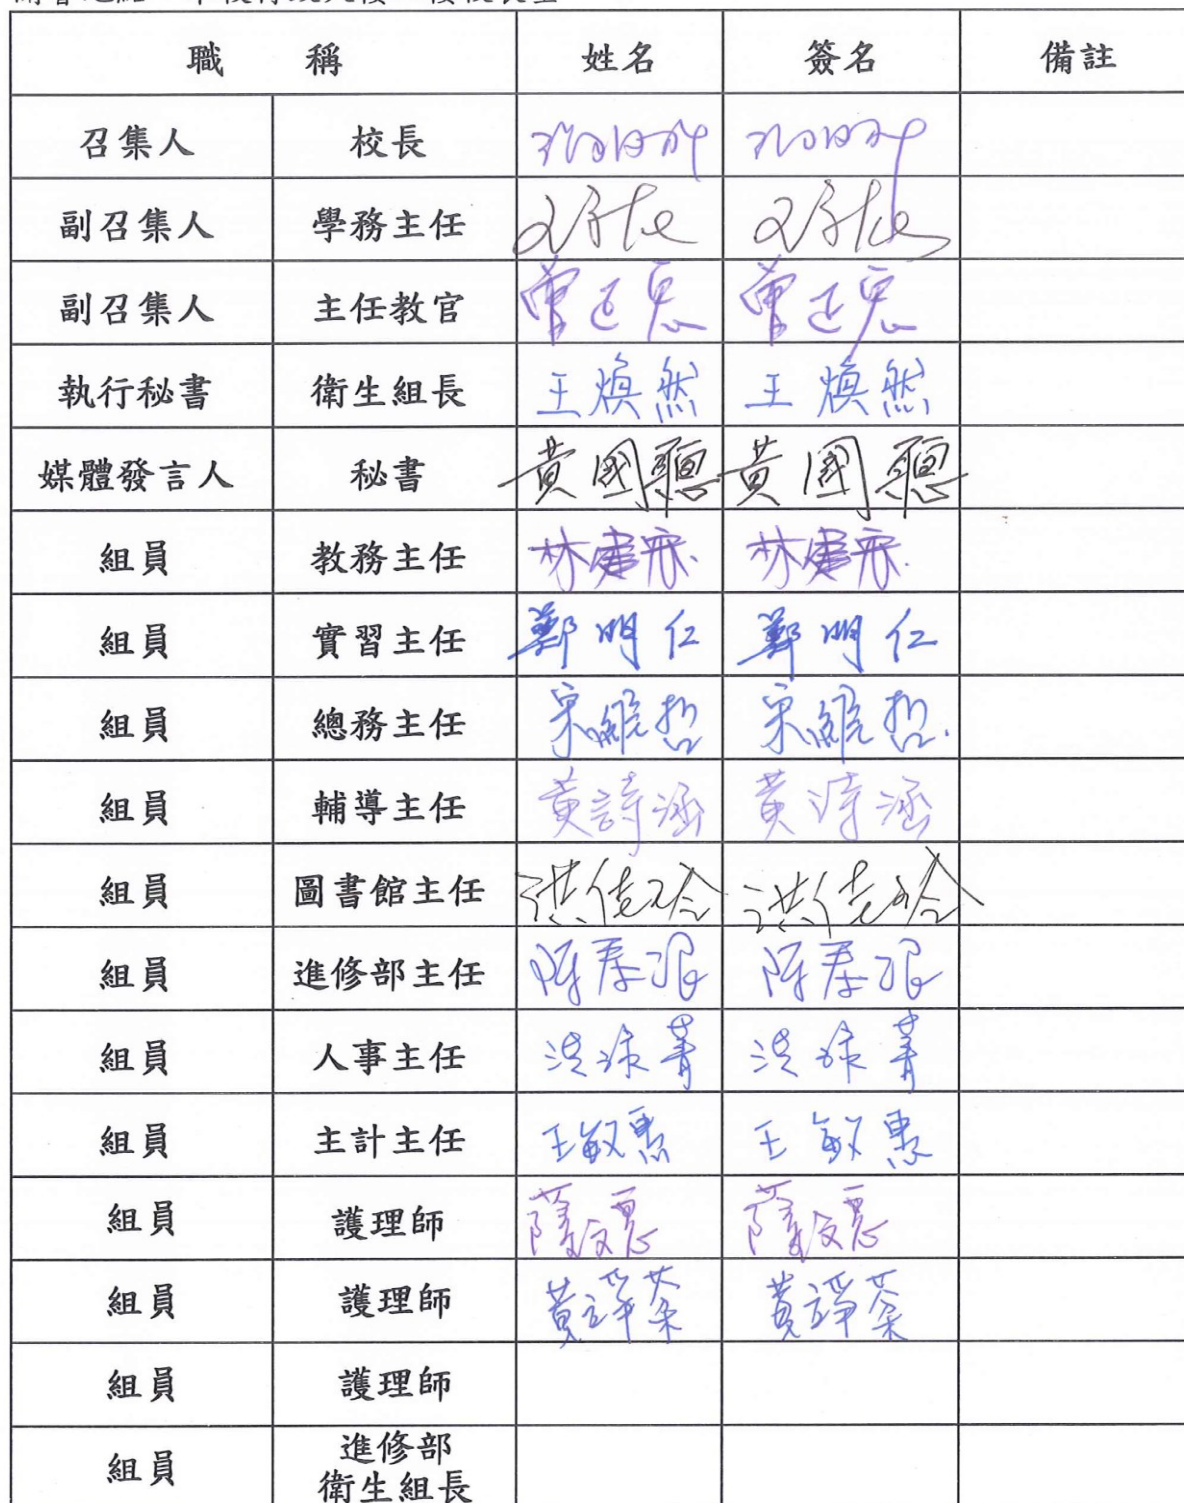 職稱 姓名 簽名 備註
召集人 校長
副召集人 學務主任
副召集人 主任教官 曾 曾
執行秘書 衛生組長 王煥然 王煥然
媒體發言人 秘書 黃國聰 黃國聰
組員 教務主任 林建宗 林建宗
組員 實習主任 鄭明仁 鄭明仁
組員 總務主任 宋維哲 宋維哲
組員 輔導主任 黃詩涵 黃詩涵
組員 圖書館主任 洪佳 洪佳
組員 進修部主任 陳 陳
組員 人事主任 洪 菁 洪 菁
組員 主計主任 王敏惠 王敏惠
組員 護理師 薩文惠 薩文惠
組員 護理師 黃諍棻 黃諍棻
組員 護理師
組員 進修部
衛生組長